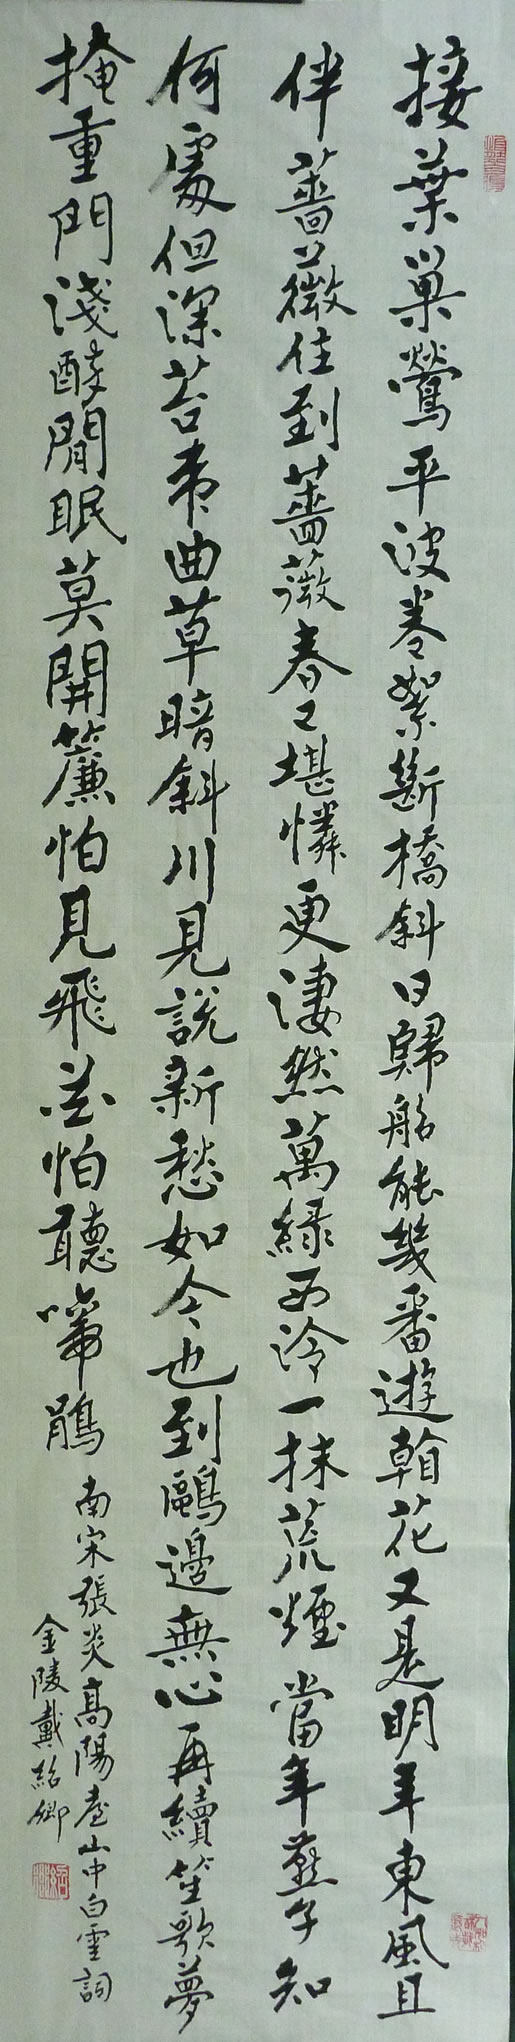 接葉巢鶯平波卷絮斷橋斜日歸船能幾番遊看花又是明年東風且
伴薔薇住到薔薇春々堪憐更淒然萬綠西泠一抹荒煙當年燕子知
何處但深苔韋曲草暗斜川見說新愁如今也到鷗邊無心再續笙歌夢
掩重門淺醉閒眠莫開簾怕見飛花怕聽啼鵑
南宋張炎高陽臺山中白雲詞
金陵戴紹卿